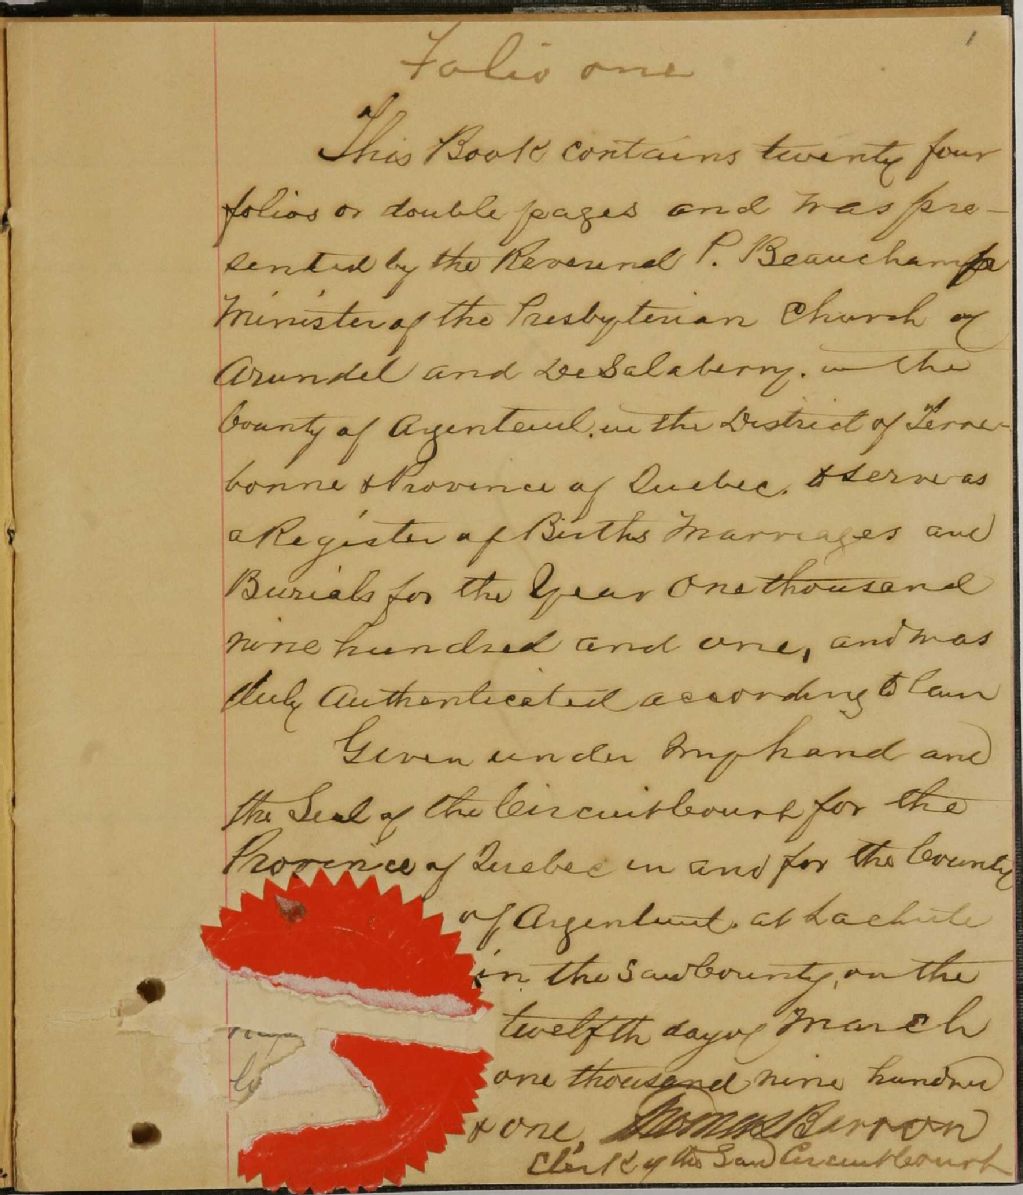 1
Folio one
This Book contains twenty four
folios or double pages and was pre-
sented by the Reverend P. Beauchamp
Minister of the Presbyterian Church of
Arundel and DeSalaberry. in the
County of Argenteuil. in the District of Terre-
bonne & Province of Quebec. to serve as
a Register of Births Marriages and
Burials for the Year One thousand
nine hundred and one, and was
duly Authenticated according to law
Given under my hand and
the Seal of the Circuit Court for the
Province of Quebec in and for the County
of Argenteuil. at Lachute
in the said County, on the
twelfth day of March
one thousand nine hundred
& one. Thomas Barron
Clerk of the Said Circuit Court